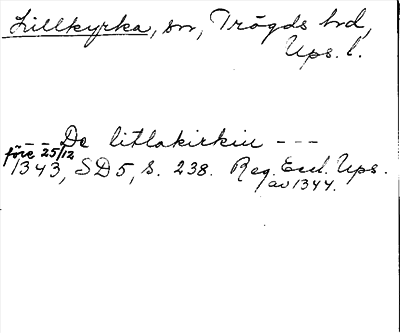 Lillkyrka, sn, Trögds hd,
Ups. l.
- - De litlakirkiu - - -
före 25/12
1343, SD5, s. 238. Reg. Eccl. Ups.
av 1344.